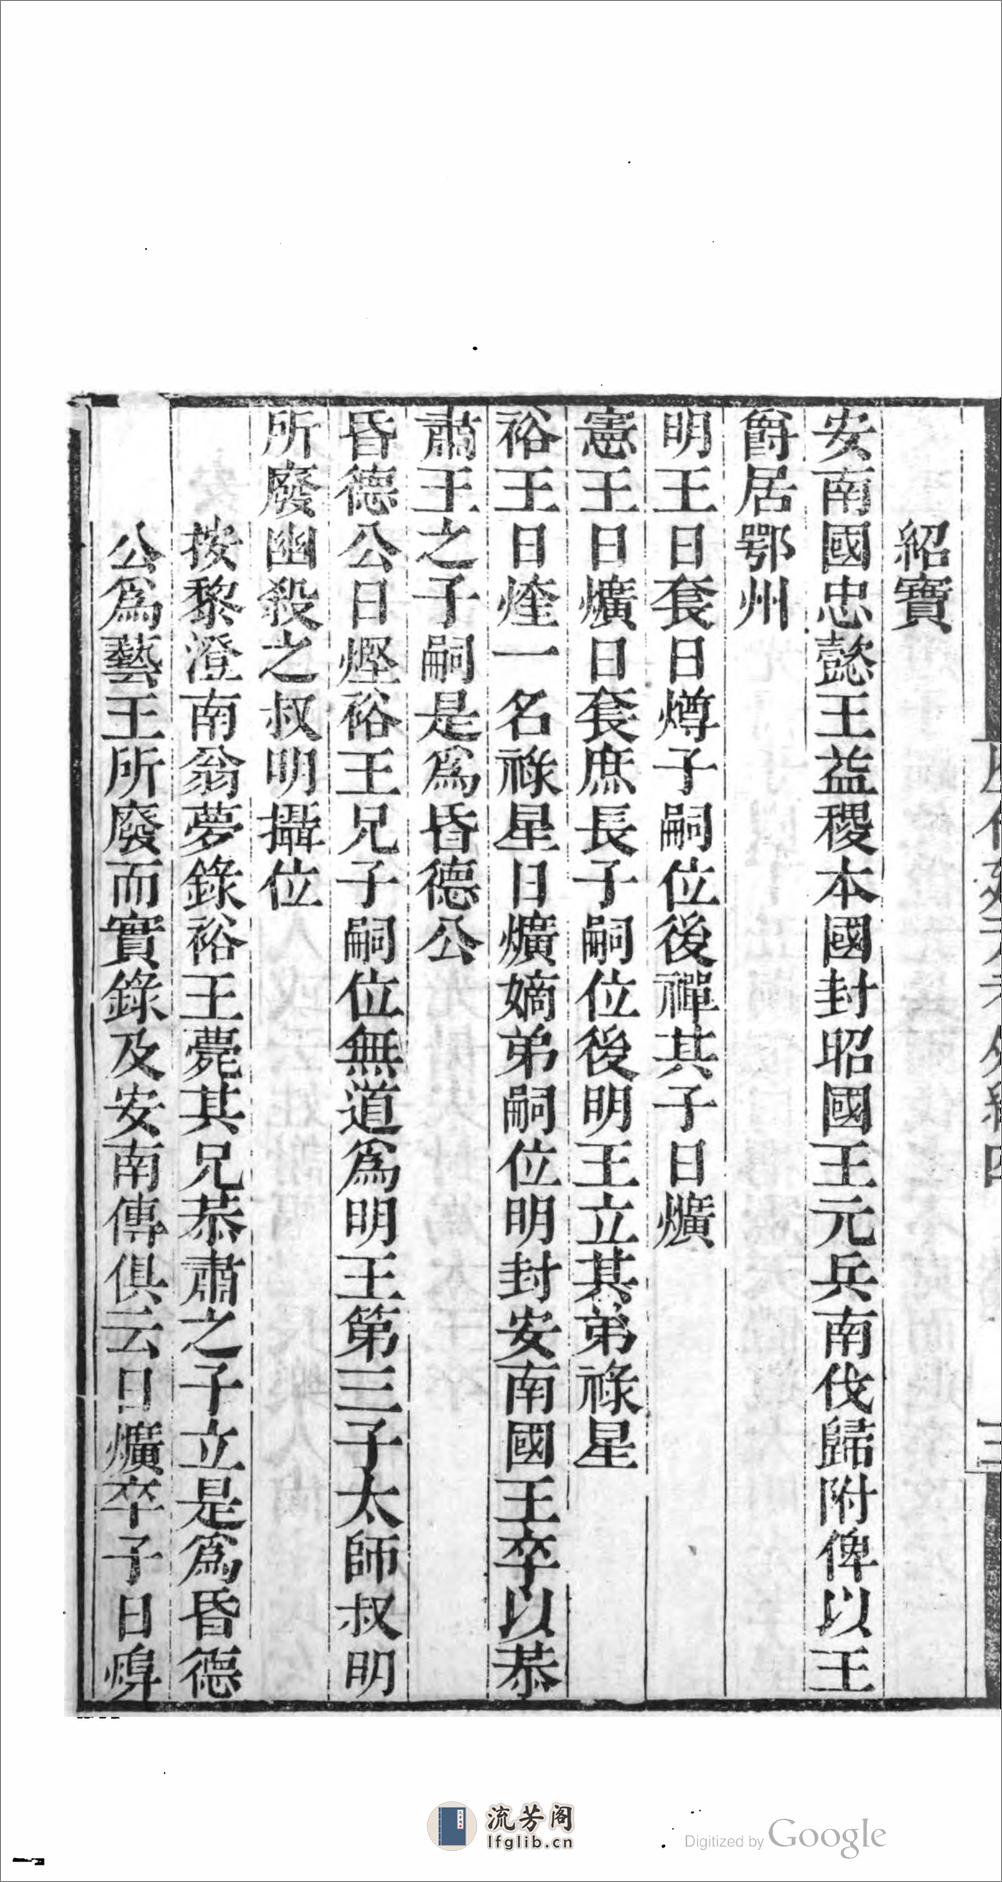 紹寶
安南國忠懿王益稷本國封昭國王元兵南伐歸附俾以王
爵居鄂州
明王日㷃日燇子嗣位後禪其子日爌
憲王日爌日㷃庶長子嗣位後明王立其弟祿星
裕王日煃一名祿星日爌嫡弟嗣位明封安南國王卒以恭
肅王之子嗣是爲昏德公
昏德公日熞裕王兄子嗣位無道爲明王第三子太師叔明
所廢幽殺之叔明攝位
按黎澄南翁夢錄裕王薨其兄恭肅之子立是爲昏德
公爲藝王所廢而實錄及安南傳俱云日爌卒子日
流芳阁
lfglib.cn
Digitized by Google